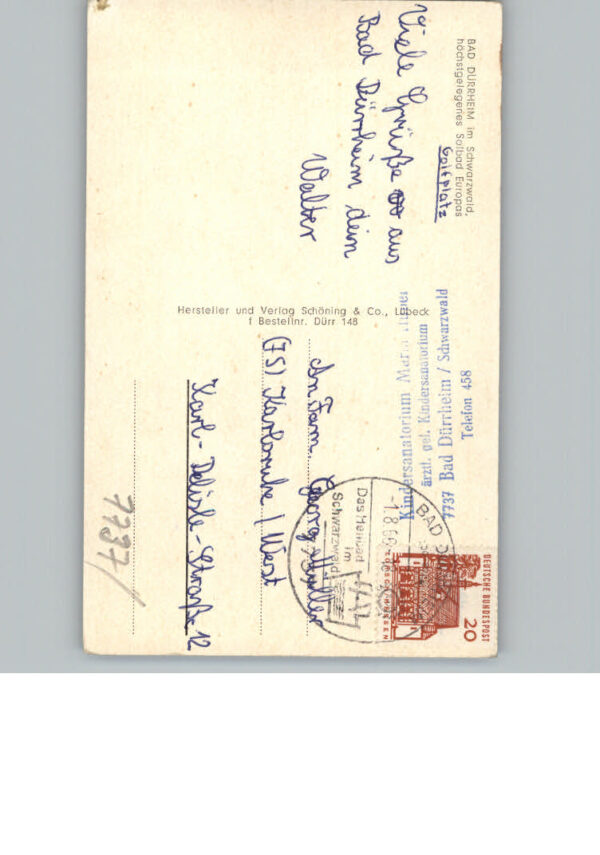 BAD DÜRRHEIM im Schwarzwald,
höchstgelegenes Solbad Europas
Golfplatz
Viele Grüße aus
Bad Dürrheim dein
Walter
Hersteller und Verlag Schöning & Co., Lübeck
Bestellnr. Dürr 148
Kindersanatorium
ärztl. gel. Kindersanatorium
7737 Bad Dürrheim / Schwarzwald
Telefon 458
DEUTSCHE BUNDESPOST
20
BAD
-1.8.66
Das Heilbad
im
Schwarzwald
An Fam. Georg Müller
(75) Karlsruhe / West
Karl-Delisle-Straße 12
7797/